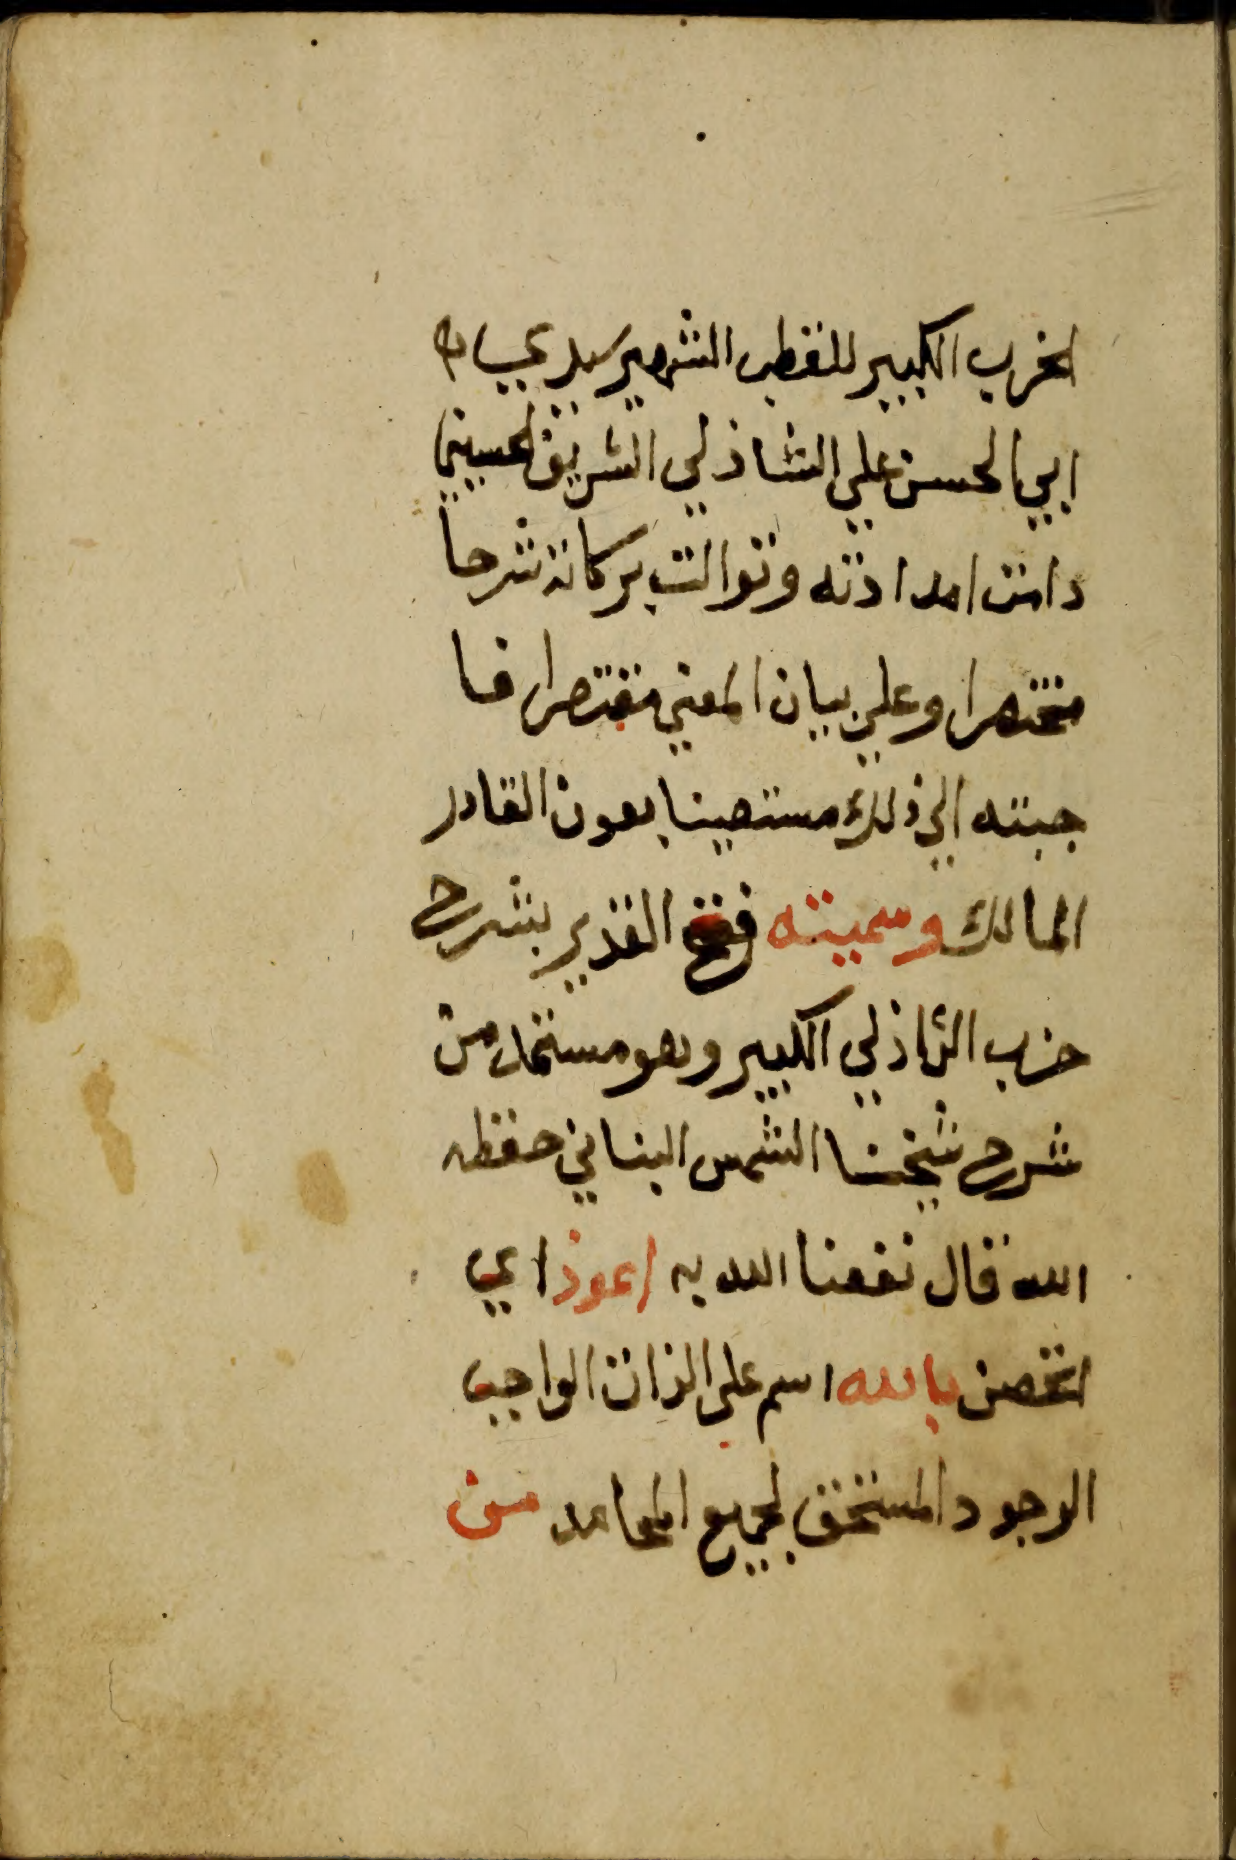 الحزب الكبير للقطب الشهير سيدي
ابي الحسن علي الشاذلي الشريف الحسيني
دامت امداداته وتوالت بركاته شرحا
مختصرا وعلي بيان المعني مقتصرا فا
جبته الي ذلك مستعينا بعون القادر
المالك وسميته فتح القدير بشرح
حزب الشاذلي الكبير وهو مستمد من
شرح شيخنا الشمس البناني حفظه
الله قال نفعنا الله به اعوذ اي
اتحصن بالله اسم علي الذات الواجب
الوجود المستحق لجميع المحامد من